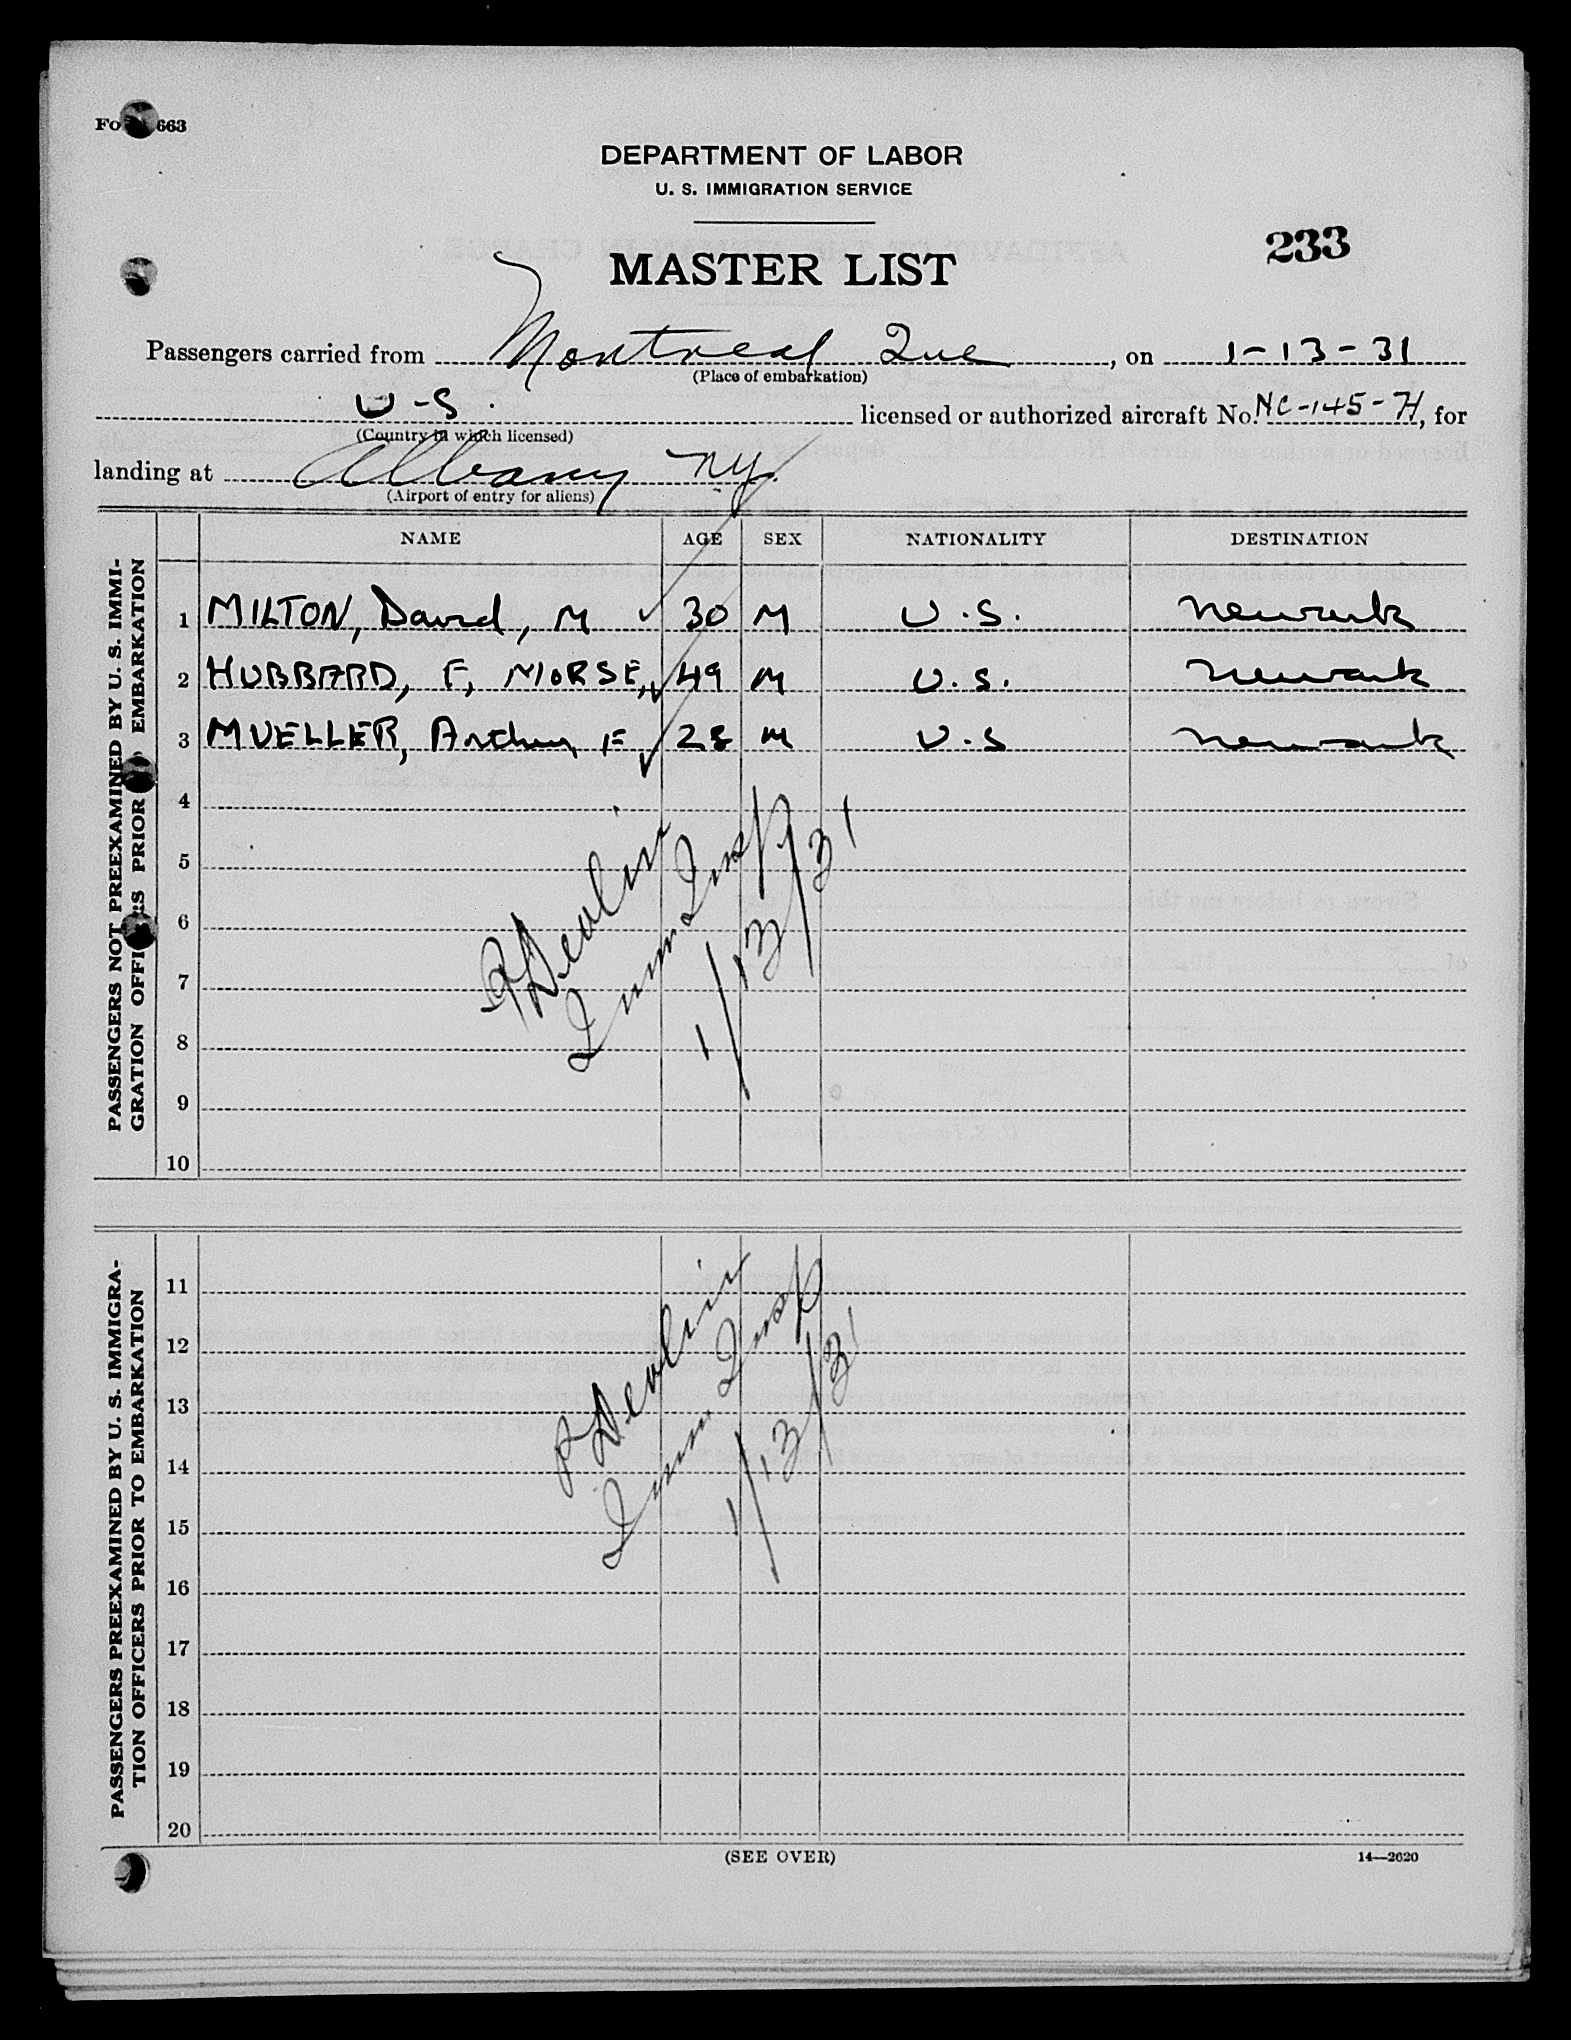 Form 663
DEPARTMENT OF LABOR
U. S. IMMIGRATION SERVICE
233
MASTER LIST
Passengers carried from Montreal Que, on 1-13-31
(Place of embarkation)
U-S. licensed or authorized aircraft No. NC-145-H, for
(Country in which licensed)
landing at Albany NY.
(Airport of entry for aliens)
NAME AGE SEX NATIONALITY DESTINATION
PASSENGERS NOT PREEXAMINED BY U. S. IMMI-
GRATION OFFICERS PRIOR TO EMBARKATION
1 MILTON, David, M ✓ 30 M U.S. Newark
2 HUBBARD, F, MORSE, ✓ 49 M U.S. Newark
3 MUELLER, Arthur F ✓ 28 M U.S Newark
4
5
6
7
8
9
10
P Devlin
Imm Insp
1/13/31
PASSENGERS PREEXAMINED BY U. S. IMMIGRA-
TION OFFICERS PRIOR TO EMBARKATION
11
12
13
14
15
16
17
18
19
20
P Devlin
Imm. Insp
1/13/31
(SEE OVER)
14—2620